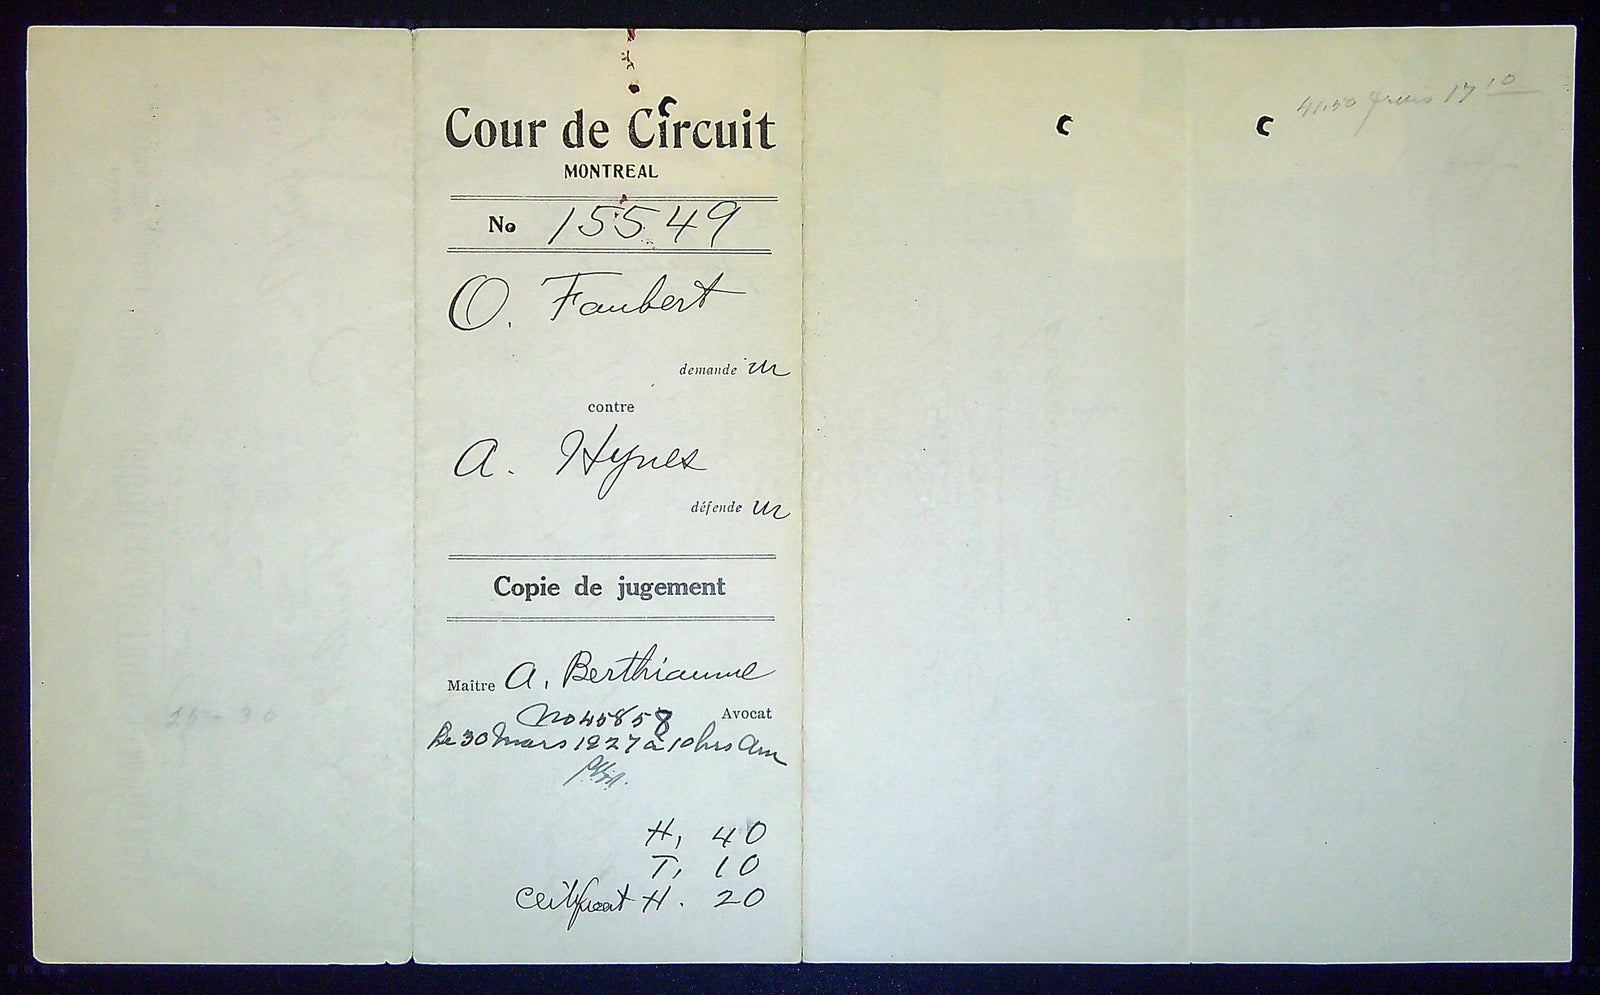 Cour de Circuit
MONTREAL
No 15549
O. Faubert
demande ur
contre
A. Hynes
défende ur
Copie de jugement
Maître A. Berthiaume
Avocat
No 45858
Le 30 Mars 1927 à 10 hrs Am
H, 40
T, 10
Certificat H. 20
41.50 frais 17 10